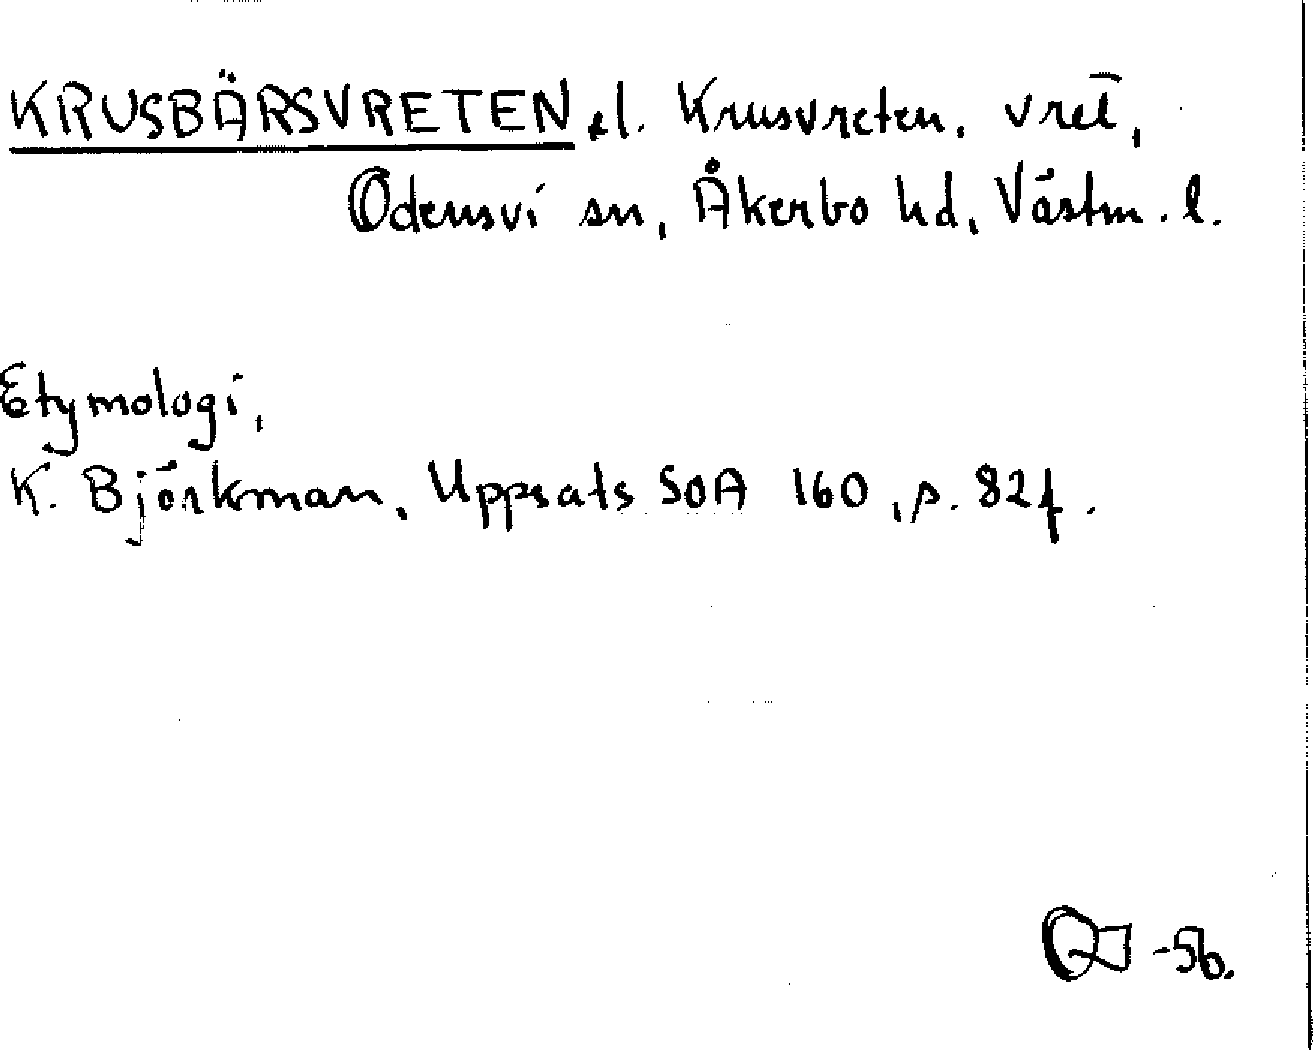 KRUSBÄRSVRETEN el. Krusvreten, vret,
Odensvi sn, Åkerbo hd, Västm. l.
Etymologi,
K. Björkman, Uppsats SOA 160, p. 82f.
-56.